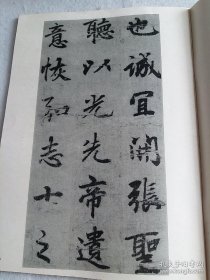 也誠宜開張聖
聽以光先帝遺
悳恢弘志士之